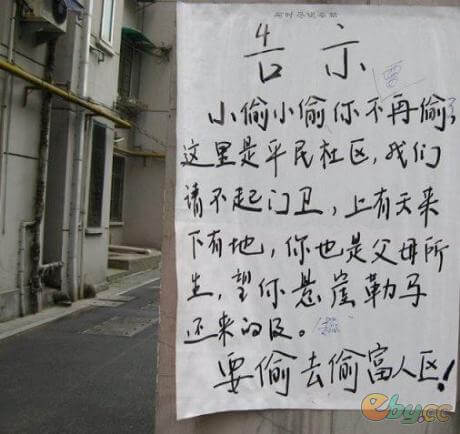 告示
要
小偷小偷你不再偷了
这里是平民社区,我们
请不起门卫,上有天来
下有地,你也是父母所
生,望你悬崖勒马
还来的及。
要偷去偷富人区!
eby.cc